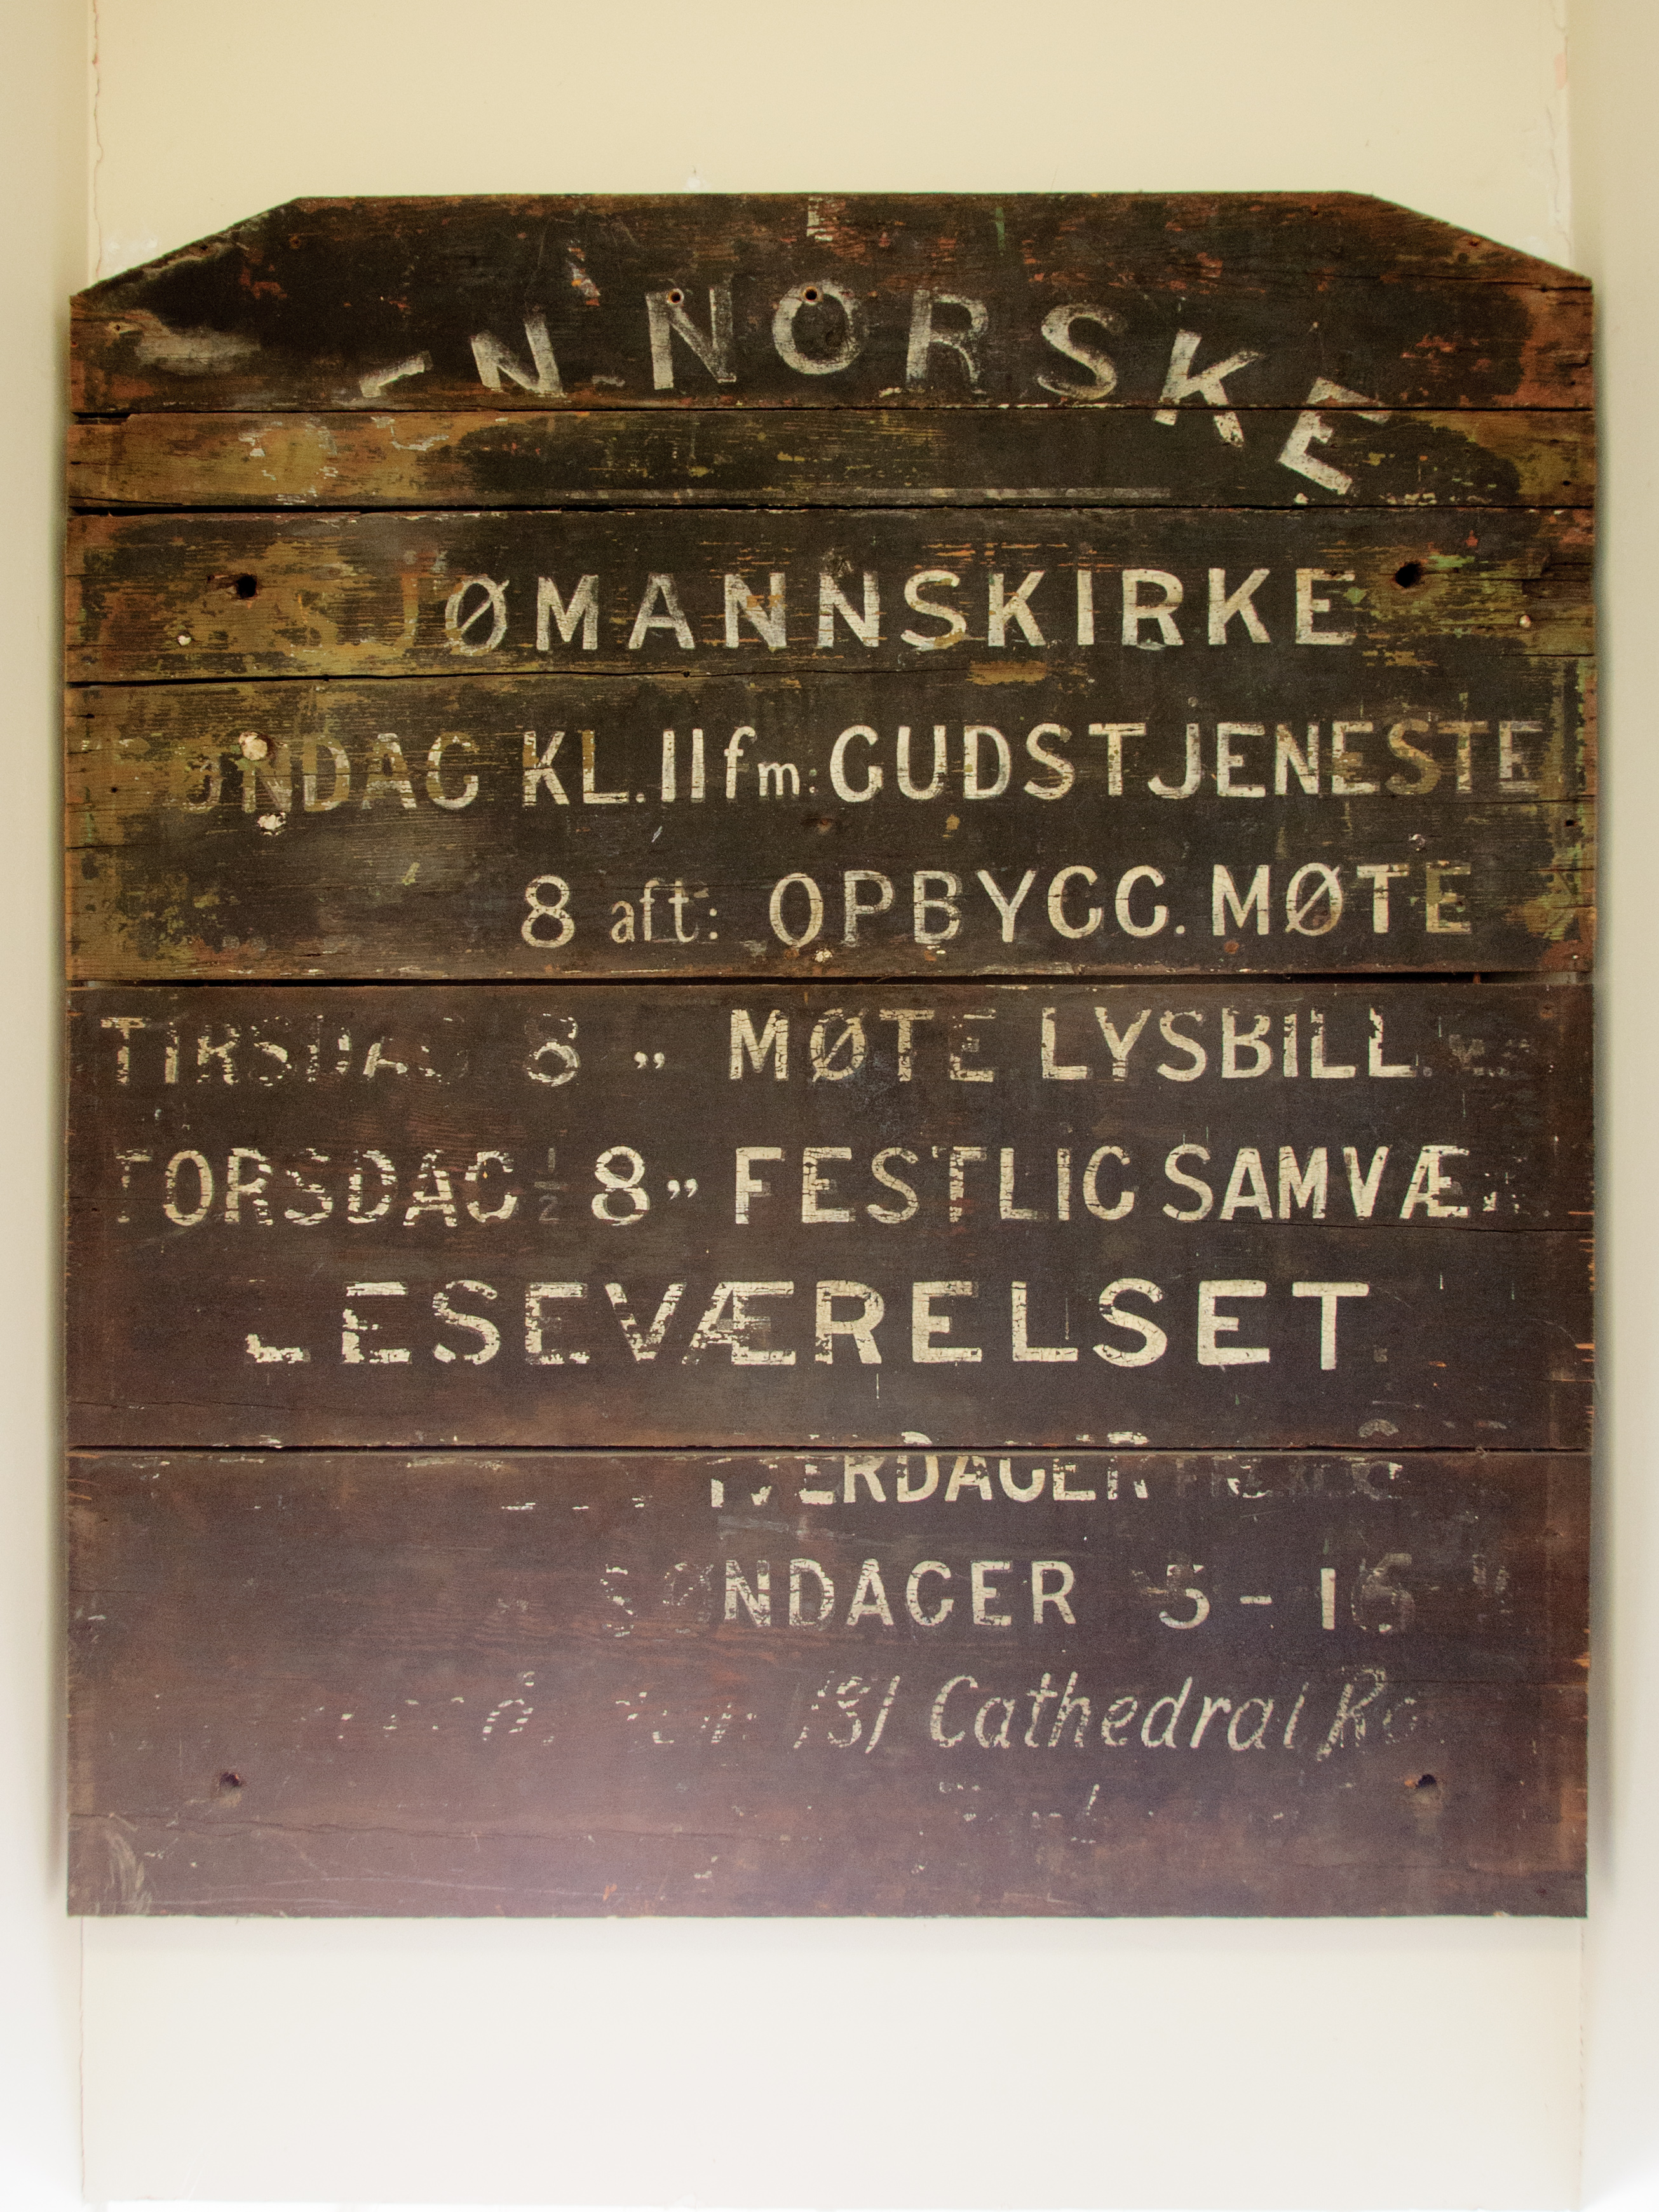 DEN NORSKE
SJØMANNSKIRKE
SØNDAG KL. 11 fm: GUDSTJENESTE
8 aft: OPBYGG. MØTE
TIRSDAG 8 „ MØTE LYSBILL.
TORSDAG ½ 8 „ FESTLIG SAMVÆR
LESEVÆRELSET
HVERDAGER
SØNDAGER 5-
181 Cathedral